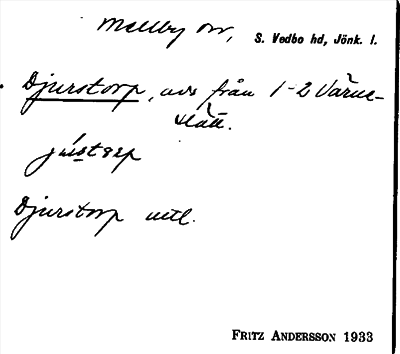 Mellby sn, S. Vedbo hd, Jönk. l.
Djurstorp, avs från 1-2 Värne-
slätt.
jústərp
Djurstorp mtl.
FRITZ ANDERSSON 1933